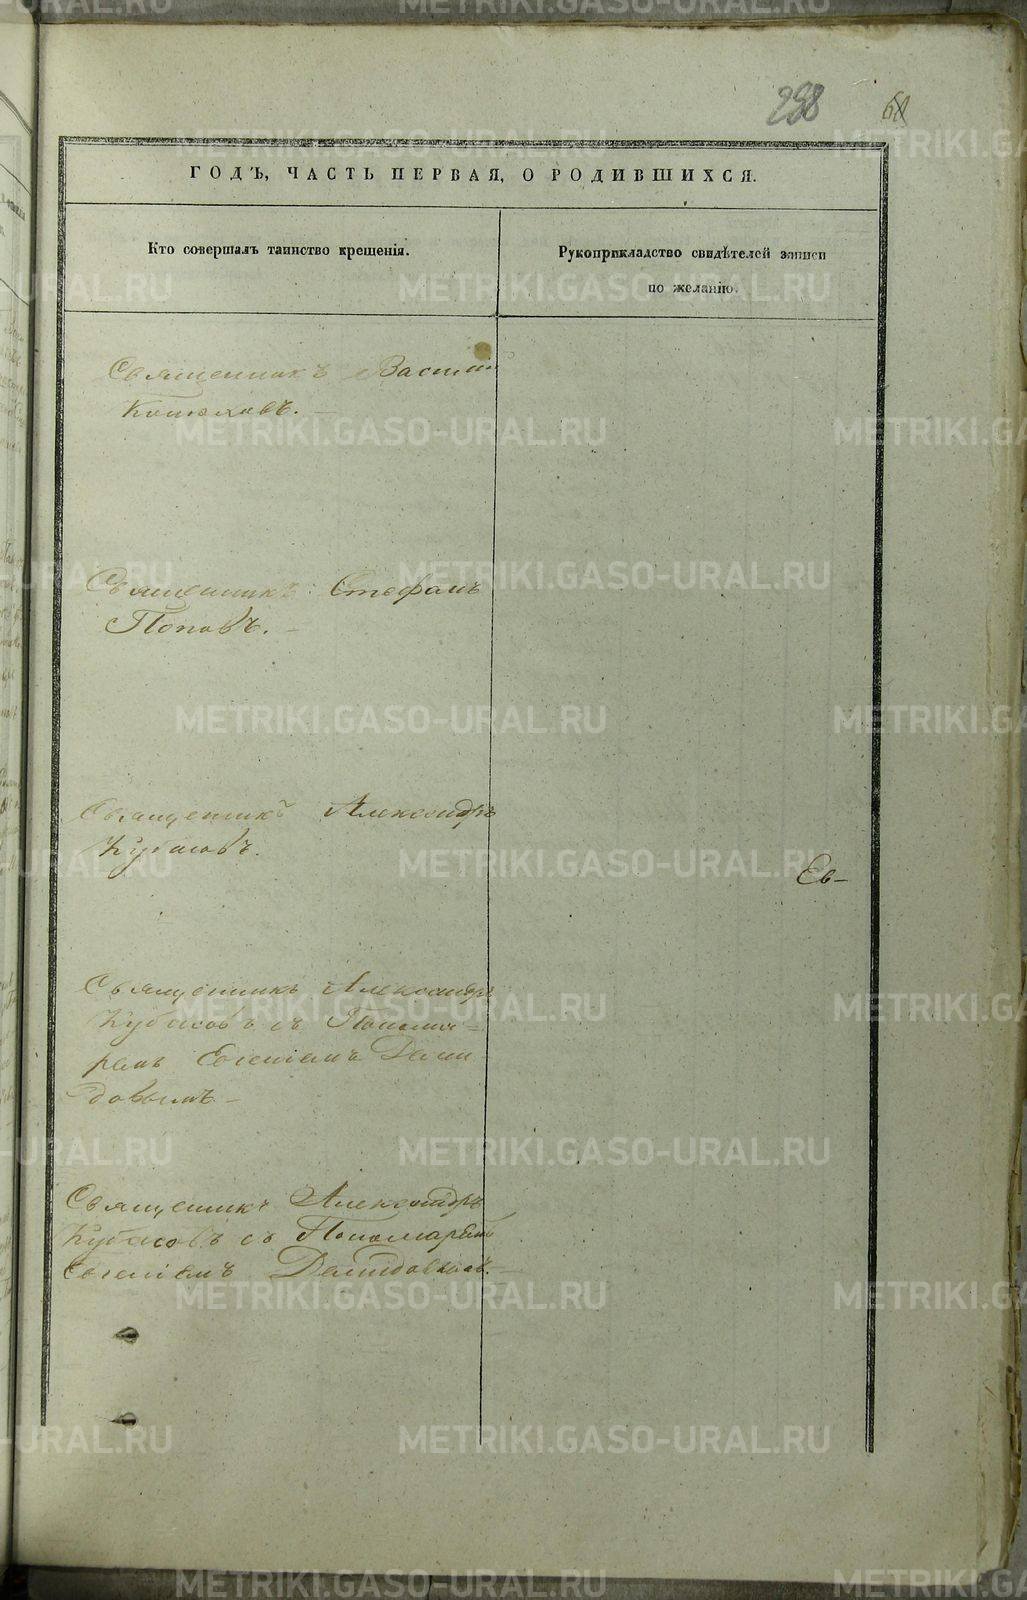 298 60
ГОДЪ, ЧАСТЬ ПЕРВАЯ, О РОДИВШИХСЯ.
Кто совершалъ таинство крещенія.
Рукоприкладство свидѣтелей записи
по желанію.
Священникъ Василій
Священникъ Стефанъ
Поповъ.
Священникъ Александръ
Кубасовъ.
Ев-
Священникъ Александръ
Кубасовъ съ Понома=
ремъ Евгеніемъ Деми
довымъ.
Священникъ Александръ
Кубасовъ съ Пономаремъ
Евгеніемъ Демидовымъ.
METRIKI.GASO-URAL.RU